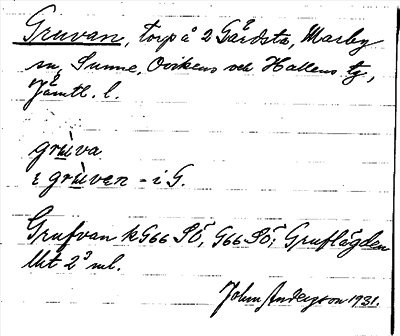 Gruvan, torp å 2 Gärdsta, Marby
sn, Sunne, Ovikens och Hallens tg,
Jämtl. l.
grùva
i grùven - i G.
Grufvan k G66 SÖ, G66 SÖ; Gruflägden
lht 2³ ml.
John Andersson 1931.